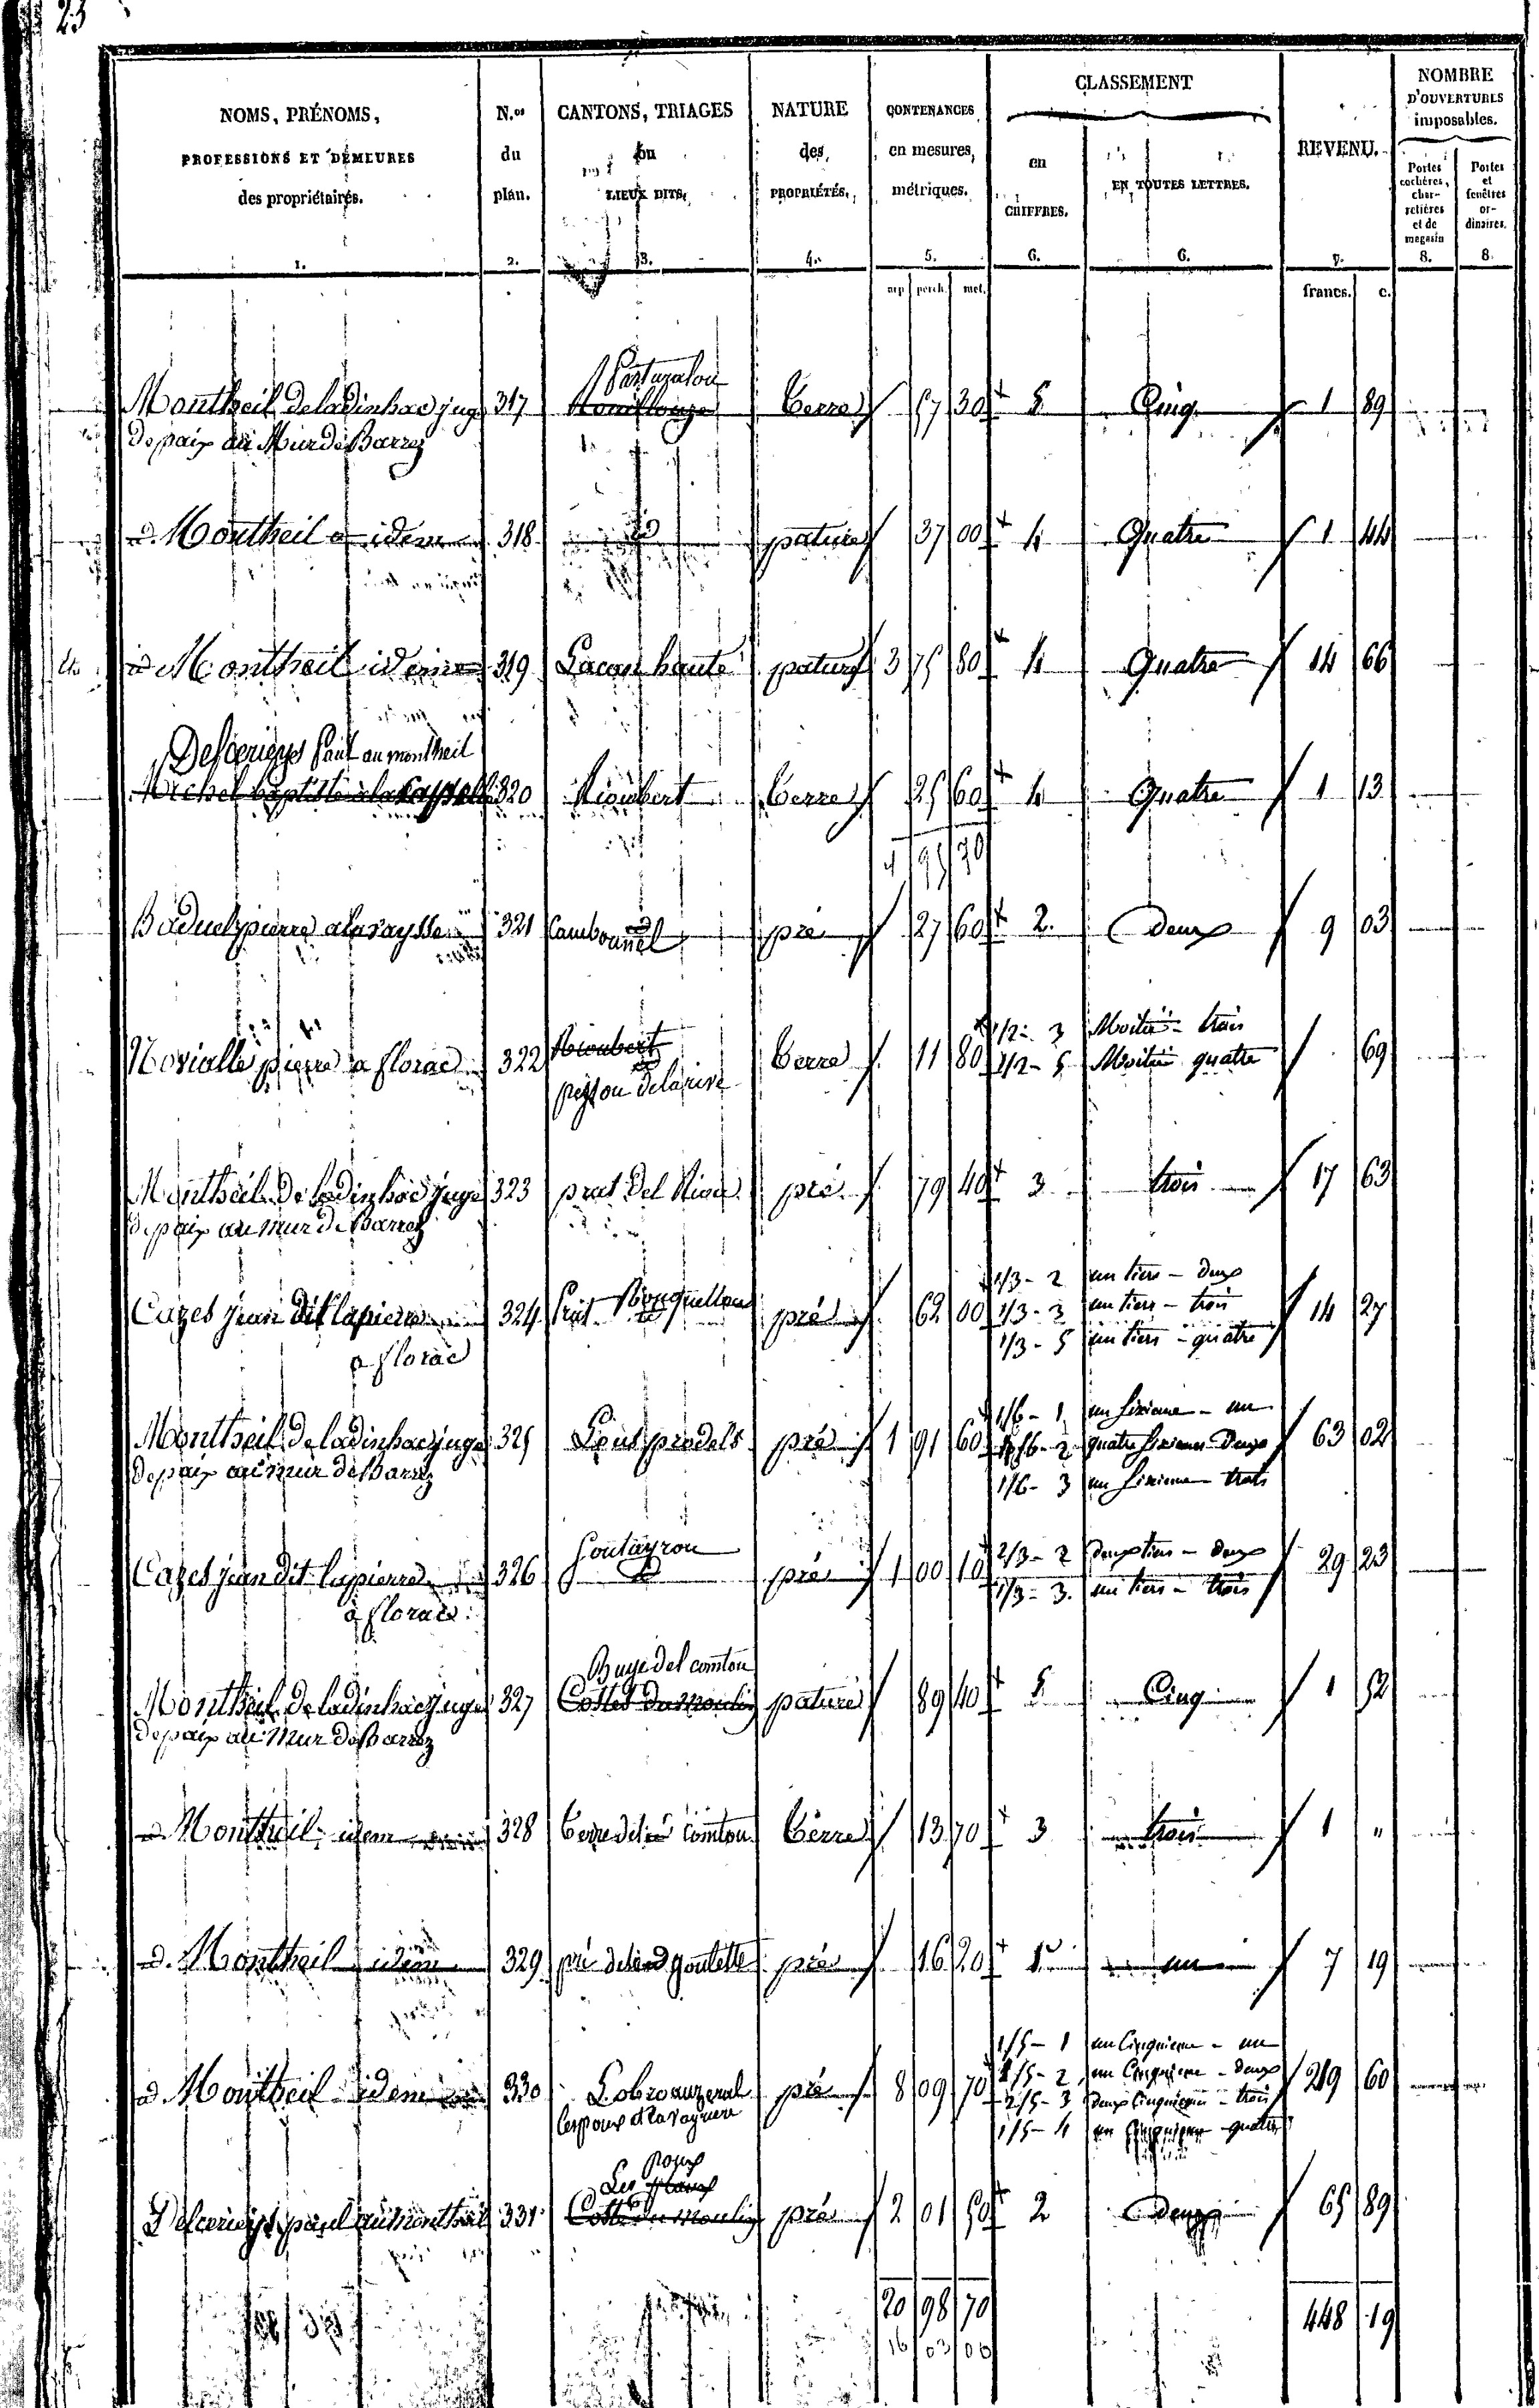 23
NOMS, PRÉNOMS, PROFESSIONS ET DEMEURES des propriétaires. 1.
N.os du plan. 2.
CANTONS, TRIAGES ou LIEUX DITS. 3.
NATURE des PROPRIÉTÉS. 4.
CONTENANCES en mesures métriques. 5.
CLASSEMENT
en CHIFFRES. 6.
EN TOUTES LETTRES. 6.
REVENU. 7.
NOMBRE D'OUVERTURES imposables.
Portes cochères, charretières et de magasin 8.
Portes et fenêtres ordinaires. 8.
arp perch. met. francs. c.
Montheil de ladinhac juge 317 Terre 57 30 5 Cinq 1 89
de paix au Mur de Barrez
id. Montheil idem 318 id pature 37 00 4 Quatre 1 44
id Montheil idem 319 Lacan haute pature 3 75 80 4 Quatre 14 66
Paul au montheil
Michel baptiste 320 Rioubert Terre 25 60 4 Quatre 1 13
4 95 70
Baduel pierre a lavaysse 321 Cambounnel pré 27 60 2 Deux 9 03
Rioubert 1/2 - 3 Moitié - trois
pierre a florac 322 Terre 11 80 1/2 - 5 Moitié quatre 69
Montheil de ladinhac juge 323 prat del Riou pré 79 40 3 trois 17 63
de paix au mur de Barrez
1/3 - 2 un tiers - deux
Cazes jean dit lapierre 324 Prat pré 62 00 1/3 - 3 un tiers - trois 14 27
a florac 1/3 - 5 un tiers - quatre
1/6 - 1 un sixieme - un
Montheil de ladinhac juge 325 pré 1 91 60 4/6 - 2 quatre sixiemes Deux 63 02
de paix au mur de Barrez 1/6 - 3 un sixieme trois
2/3 - 2 deux tiers - deux
Cazes jean dit lapierre 326 Goutayrou pré 1 00 10 1/3 - 3 un tiers - trois 29 23
à florac
Buge del comtou
Montheil de ladinhac juge 327 Costes du Moulin pature 89 40 5 Cinq 1 52
de paix au Mur de Barrez
id. Montheil idem 328 Terre del comtou Terre 13 70 3 trois 1 "
id. Montheil idem 329 pré de goulette pré 16 20 1 un 7 19
1/5 - 1 un Cinquieme - un
1/5 - 2 un Cinquieme - deux
id Montheil idem 330 pré 8 09 70 2/5 - 3 deux Cinquieme - trois 219 60
1/5 - 4 un Cinquieme quatre
Les
paul au montheil 331 Costes du Moulin pré 2 01 50 2 deux 65 89
20 98 70 448 19
16 03 00